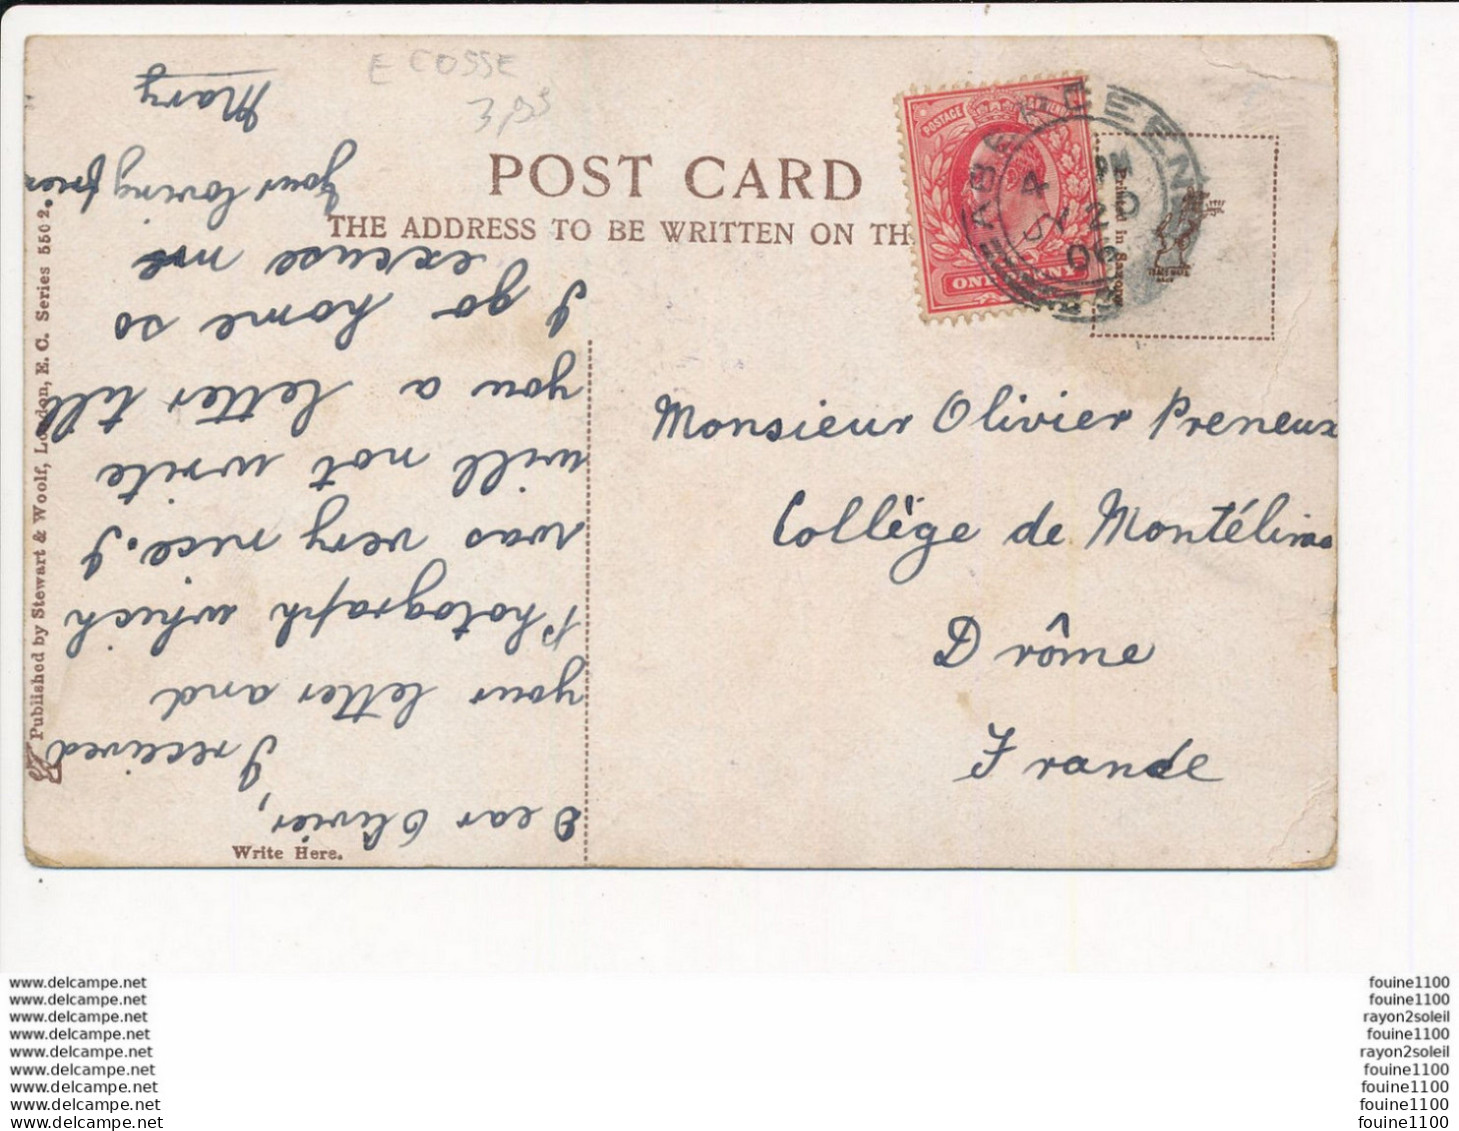 E COSSE
POST CARD
THE ADDRESS TO BE WRITTEN ON TH
POSTAGE
4 PM
20
06
Printed in Saxony
Published by Stewart & Woolf, London, E. C. Series 550 2.
Write Here.
Dear Olivier,
I received
your letter and
Photograph which
was very nice. I
will not write
you a letter till
I go home so
excuse me
Your loving frien
Mary
Monsieur Olivier Preneux
Collège de Montélimar
Drôme
France
www.delcampe.net
www.delcampe.net
www.delcampe.net
www.delcampe.net
www.delcampe.net
www.delcampe.net
www.delcampe.net
www.delcampe.net
www.delcampe.net
fouine1100
fouine1100
rayon2soleil
fouine1100
rayon2soleil
fouine1100
fouine1100
fouine1100
fouine1100